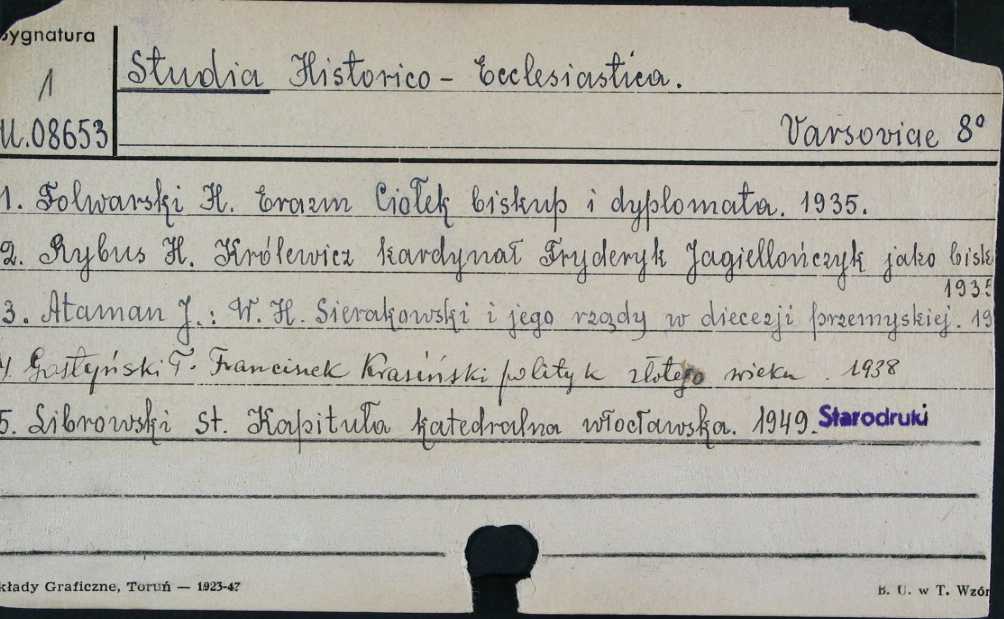 Sygnatura
1
U.08653
Studia Historico - Ecclesiastica.
Varsoviae 8°
1. Folwarski H. Erazm Ciołek biskup i dyplomata. 1935.
2. Rybus H. Królewicz kardynał Fryderyk Jagiellończyk jako bisk
1935
3. Ataman J.: W. H. Sierakowski i jego rządy w diecezji przemyskiej. 19
4. Gostyński T. Franciszek Krasiński polityk złotego wieku. 1938
5. Librowski St. Kapituła katedralna włocławska. 1949. Starodruki
kłady Graficzne, Toruń — 1923-47
B. U. w T. Wzór